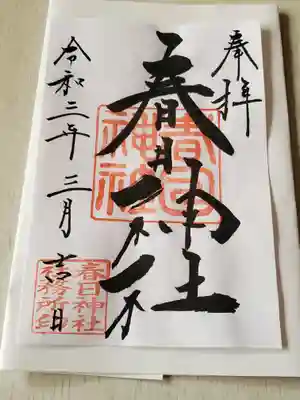 奉拝
春日神社
春日
神社
令和二年 三月 吉日
春日神社
社務所印